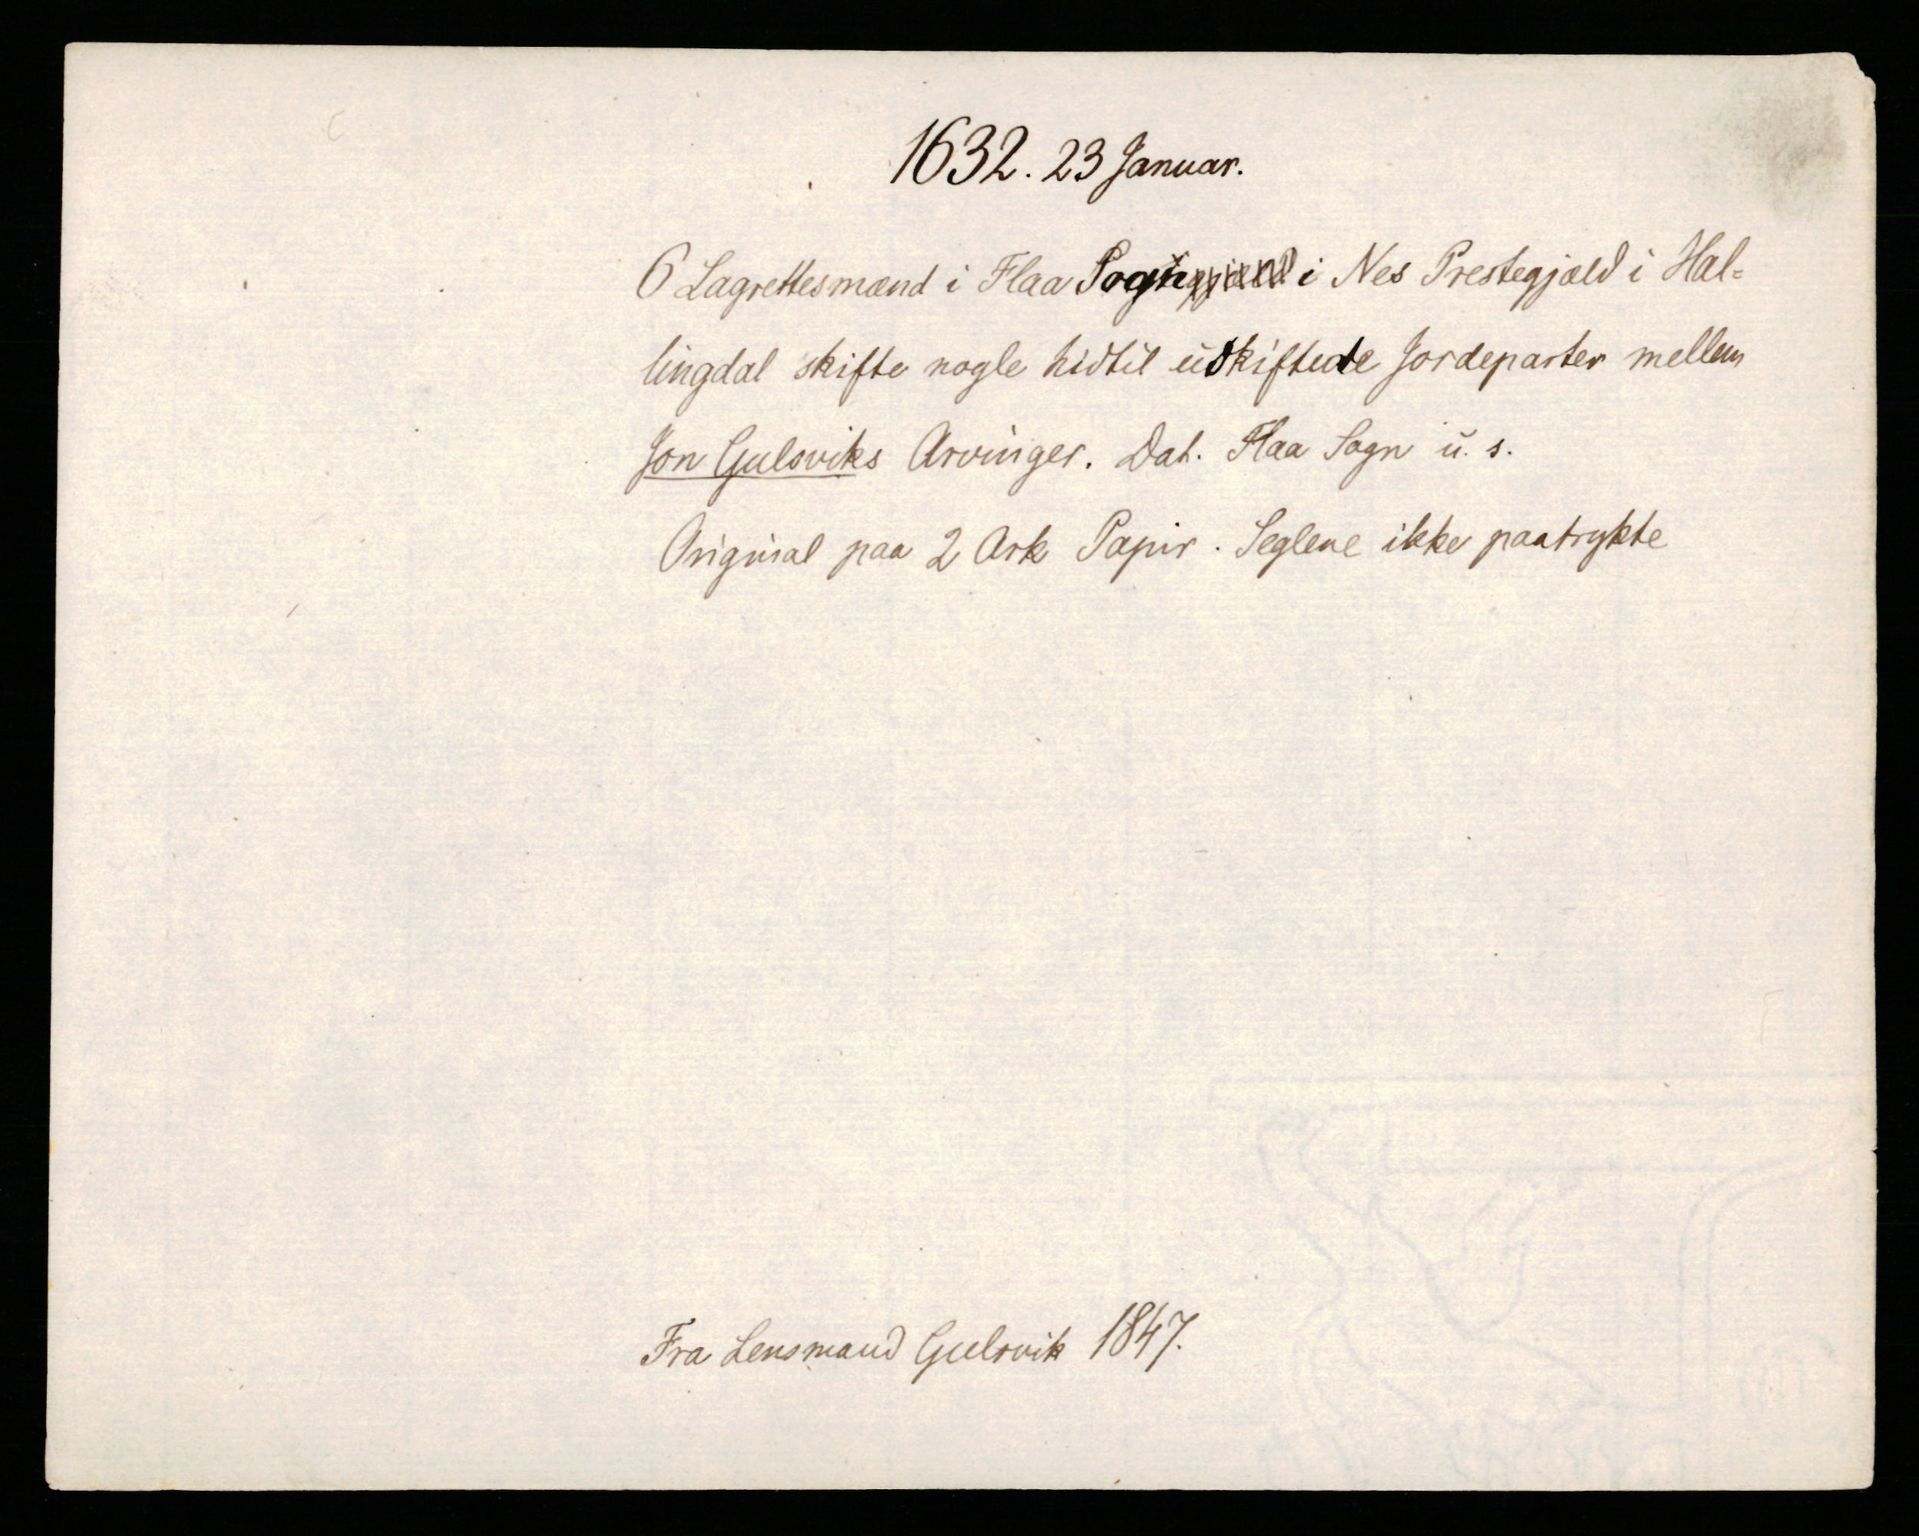 1632. 23 Januar.
6 Lagrettesmænd i Flaa Sogn i Nes Prestegjæld i Hal-
lingdal skifte nogle hidtil uskiftede Jordeparter mellem
Jon Gulsviks Arvinger. Dat. Flaa Sogn u. s.
Original paa 2 Ark Papir. Seglene ikke paatrykte
Fra Lensmand Gulsvik 1847.